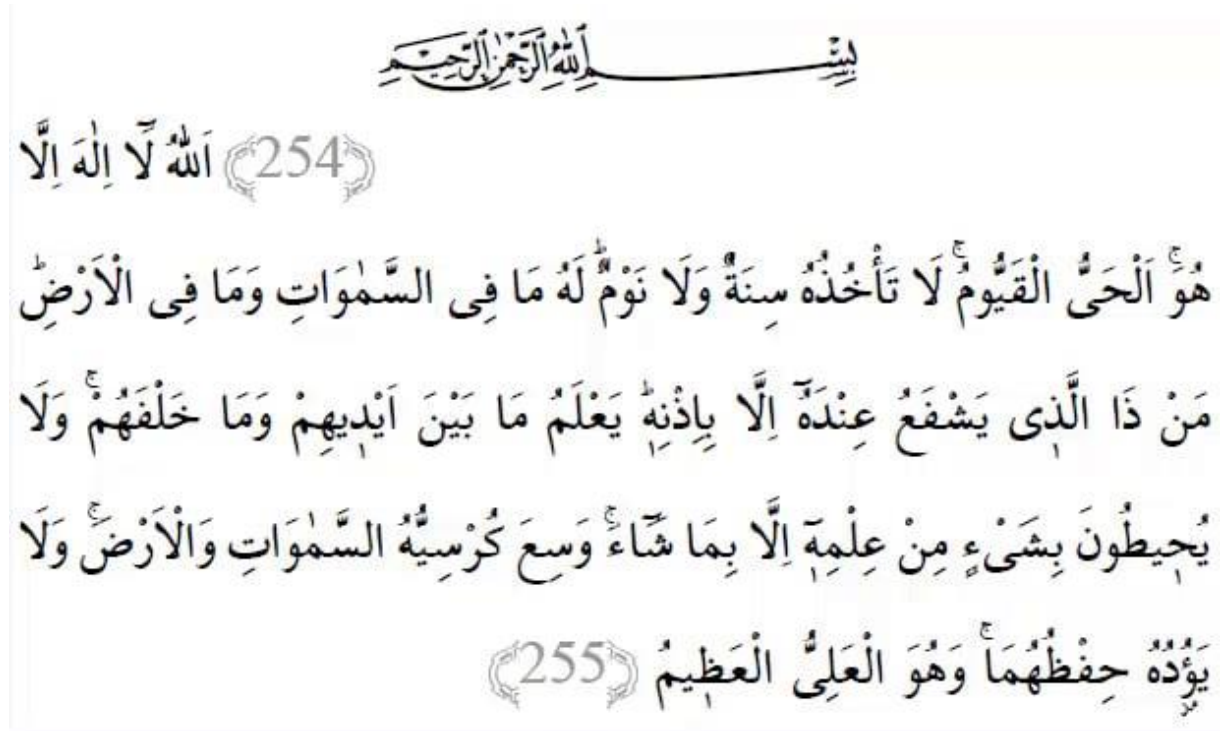 بِسْمِ اللّٰهِ الرَّحْمٰنِ الرَّحِيمِ
﴿254﴾ اَللّٰهُ لَٓا اِلٰهَ اِلَّا
هُوَۚ اَلْحَيُّ الْقَيُّومُۚ لَا تَأْخُذُهُ سِنَةٌ وَلَا نَوْمٌؕ لَهُ مَا فِى السَّمٰوَاتِ وَمَا فِى الْاَرْضِؕ
مَنْ ذَا الَّذٖى يَشْفَعُ عِنْدَهُٓ اِلَّا بِاِذْنِهٖؕ يَعْلَمُ مَا بَيْنَ اَيْدٖيهِمْ وَمَا خَلْفَهُمْۚ وَلَا
يُحٖيطُونَ بِشَىْءٍ مِنْ عِلْمِهٖٓ اِلَّا بِمَا شَٓاءَۚ وَسِعَ كُرْسِيُّهُ السَّمٰوَاتِ وَالْاَرْضَۚ وَلَا
يَؤُ۫دُهُ حِفْظُهُمَاۚ وَهُوَ الْعَلِىُّ الْعَظٖيمُ ﴿255﴾